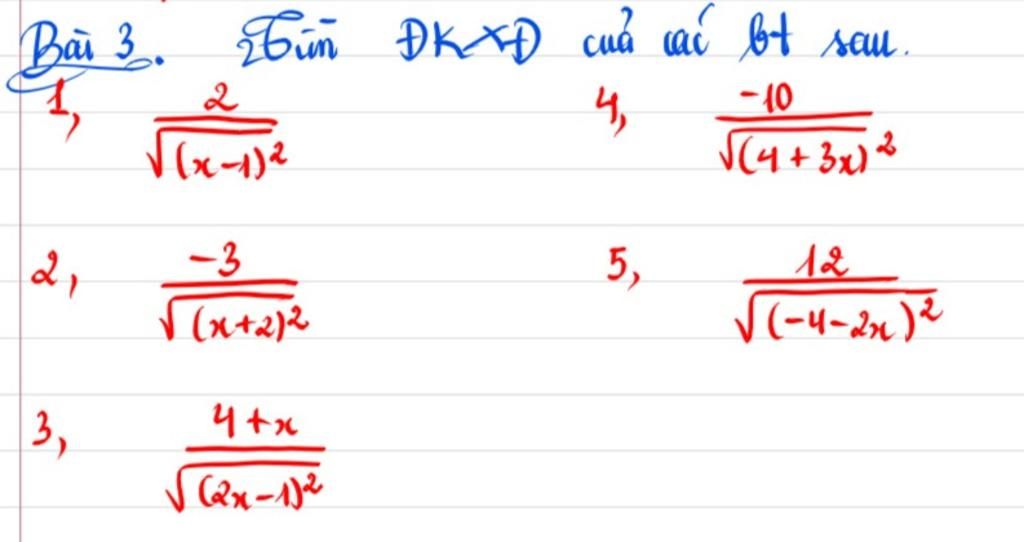 Bài 3. Tìm ĐKXĐ của các bt sau.
1, 2/√(x-1)²
4, -10/√(4+3x)²
2, -3/√(x+2)²
5, 12/√(-4-2x)²
3, 4+x/√(2x-1)²